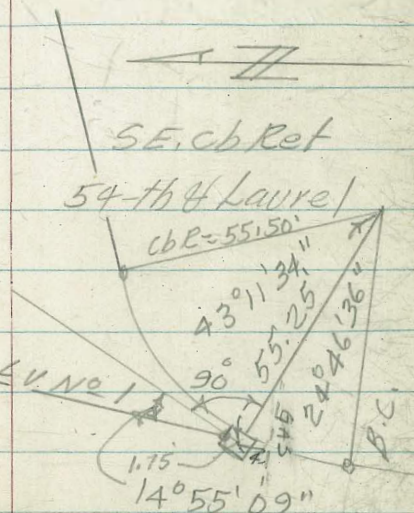 N
SE. cb Ret
54-th & Laurel
cb R = 55.50'
43° 11' 34"
55.25
24° 46' 36"
90°
L.V. No 1
B.C.
1.75
14° 55' 09"